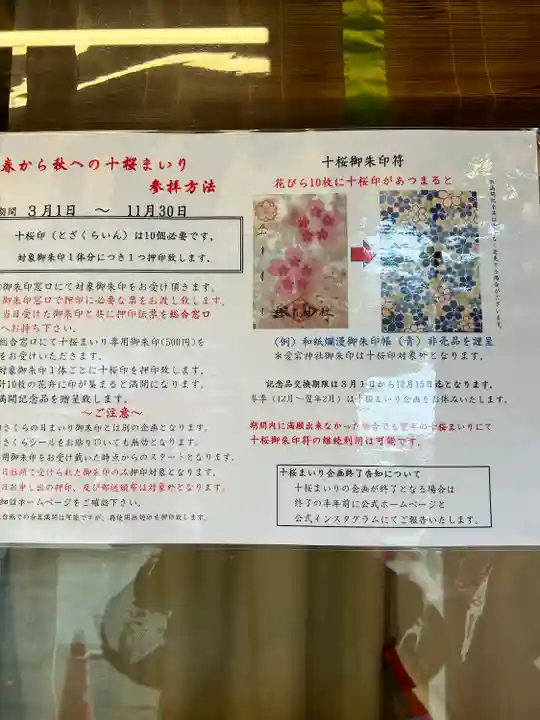 春から秋への十桜まいり
参拝方法
期間 3月1日 ～ 11月30日
十桜印（とざくらいん）は10個必要です。
対象御朱印1体分につき1つ押印致します。
御朱印窓口にて対象御朱印をお受け頂きます。
御朱印窓口で押印に必要な票をお渡し致します。
当日受けた御朱印と共に押印伝票を総合窓口
へお持ち下さい。
総合窓口にて十桜まいり専用御朱印(500円)を
をお受けいただきます。
対象御朱印1体ごとに十桜印を押印致します。
計10枚の花弁に印が集まると満開になります。
満開記念品を贈呈致します。
～ご注意～
さくらの月まいり御朱印とは別の企画となります。
さくらシールをお貼り頂いても無効となります。
用御朱印をお受け戴いた時点からのスタートとなります。
日社頭で受けられた御朱印のみ押印対象となります。
日お申し出の押印、及び郵送頒布は対象外となります。
細はホームページをご確認下さい。
十桜御朱印符
花びら10枚に十桜印があつまると
（例）和紙爛漫御朱印帳（青）非売品を謹呈
※愛宕神社御朱印は十桜印対象外となります。
記念品交換期限は3月1日から12月15日迄となります。
冬季（12月～翌年2月）は十桜まいり企画をお休みいたします。
期間内に満願出来なかった場合でも翌年の十桜まいりにて
十桜御朱印符の継続利用は可能です。
十桜まいり企画終了告知について
十桜まいりの企画が終了となる場合は
終了の半年前に公式ホームページと
公式インスタグラムにてご報告いたします。